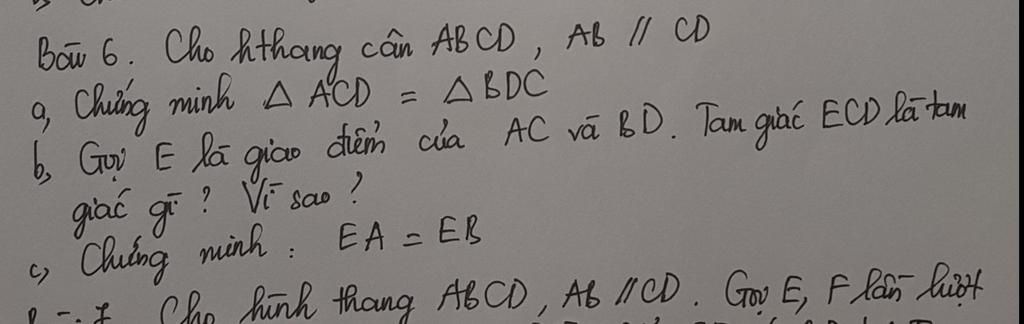 Bài 6. Cho hthang cân ABCD, AB // CD
a, Chứng minh △ ACD = △ BDC
b, Gọi E là giao điểm của AC và BD. Tam giác ECD là tam
giác gì? Vì sao?
c, Chứng minh: EA = EB
Cho hình thang ABCD, AB // CD. Gọi E, F lần lượt